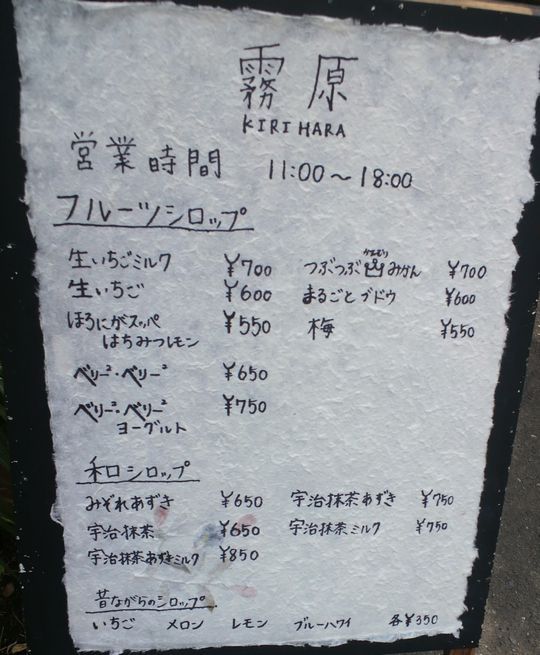 霧原
KIRIHARA
営業時間 11:00～18:00
フルーツシロップ
生いちごミルク ¥700
生いちご ¥600
ほろにがスッパ
はちみつレモン ¥550
ベリー²・ベリー² ¥650
ベリー²・ベリー²
ヨーグルト ¥750
つぶつぶ山みかん ¥700
まるごとブドウ ¥600
梅 ¥550
和風シロップ
みぞれあずき ¥650
宇治抹茶 ¥650
宇治抹茶あずきミルク ¥850
宇治抹茶あずき ¥750
宇治抹茶ミルク ¥750
昔ながらのシロップ
いちご メロン レモン ブルーハワイ 各¥350